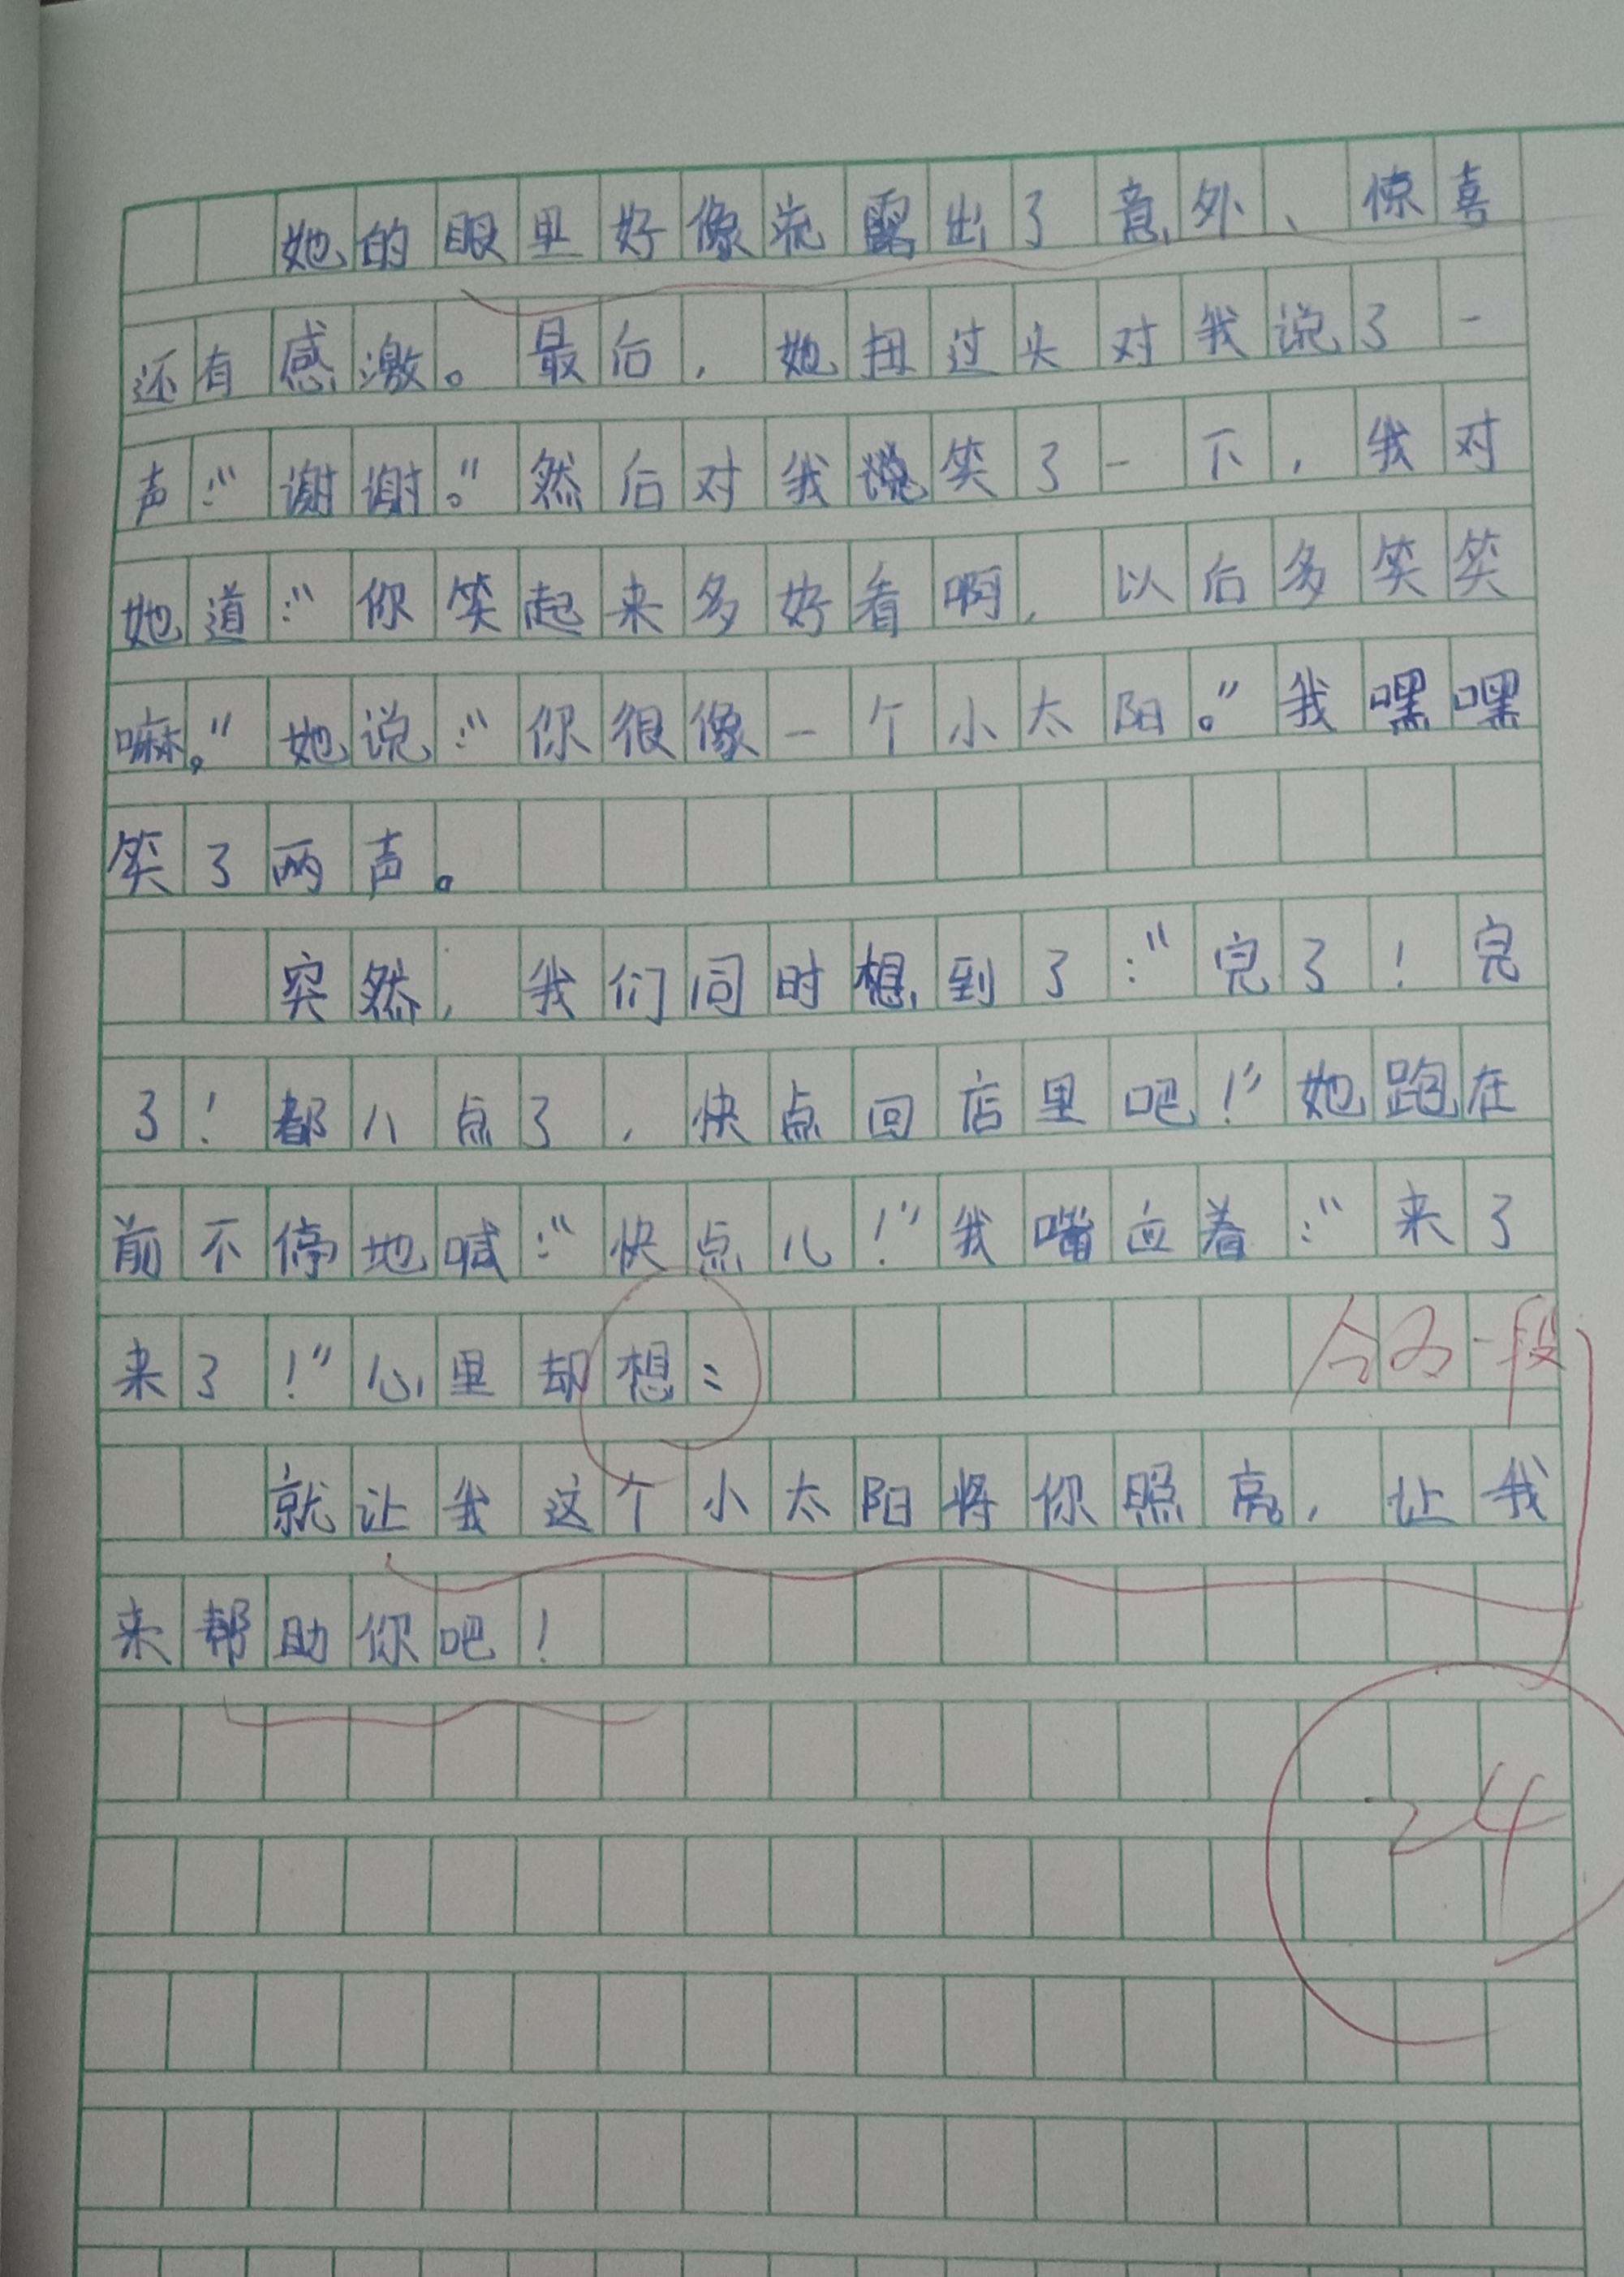 她的眼里好像流露出了意外、惊喜
还有感激。最后，她扭过头对我说了一
声：“谢谢。”然后对我说笑了一下，我对
她道：“你笑起来多好看啊，以后多笑笑
嘛。”她说：“你很像一个小太阳。”我嘿嘿
笑了两声。
突然，我们同时想到了：“完了！完
了！都八点了，快点回店里吧！”她跑在
前不停地喊：“快点儿！”我嘴应着：“来了
来了！”心里却想：
合为一段
就让我这个小太阳将你照亮，让我
来帮助你吧！
24